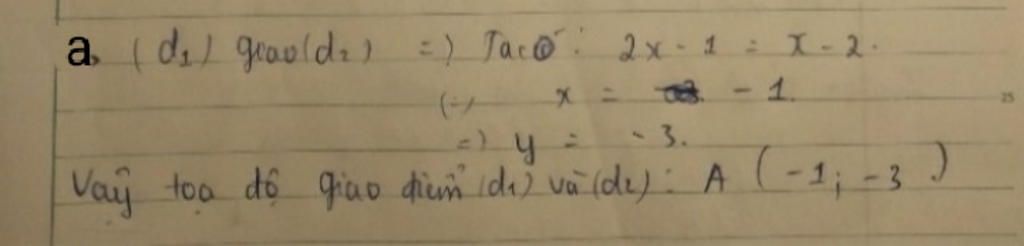 a, (d₁) giao (d₂) => Ta có: 2x - 1 = x - 2.
(=) x = - 1.
=) y = - 3.
Vaỹ toạ độ giao điểm (d₁) và (d₂): A (-1; -3)
25